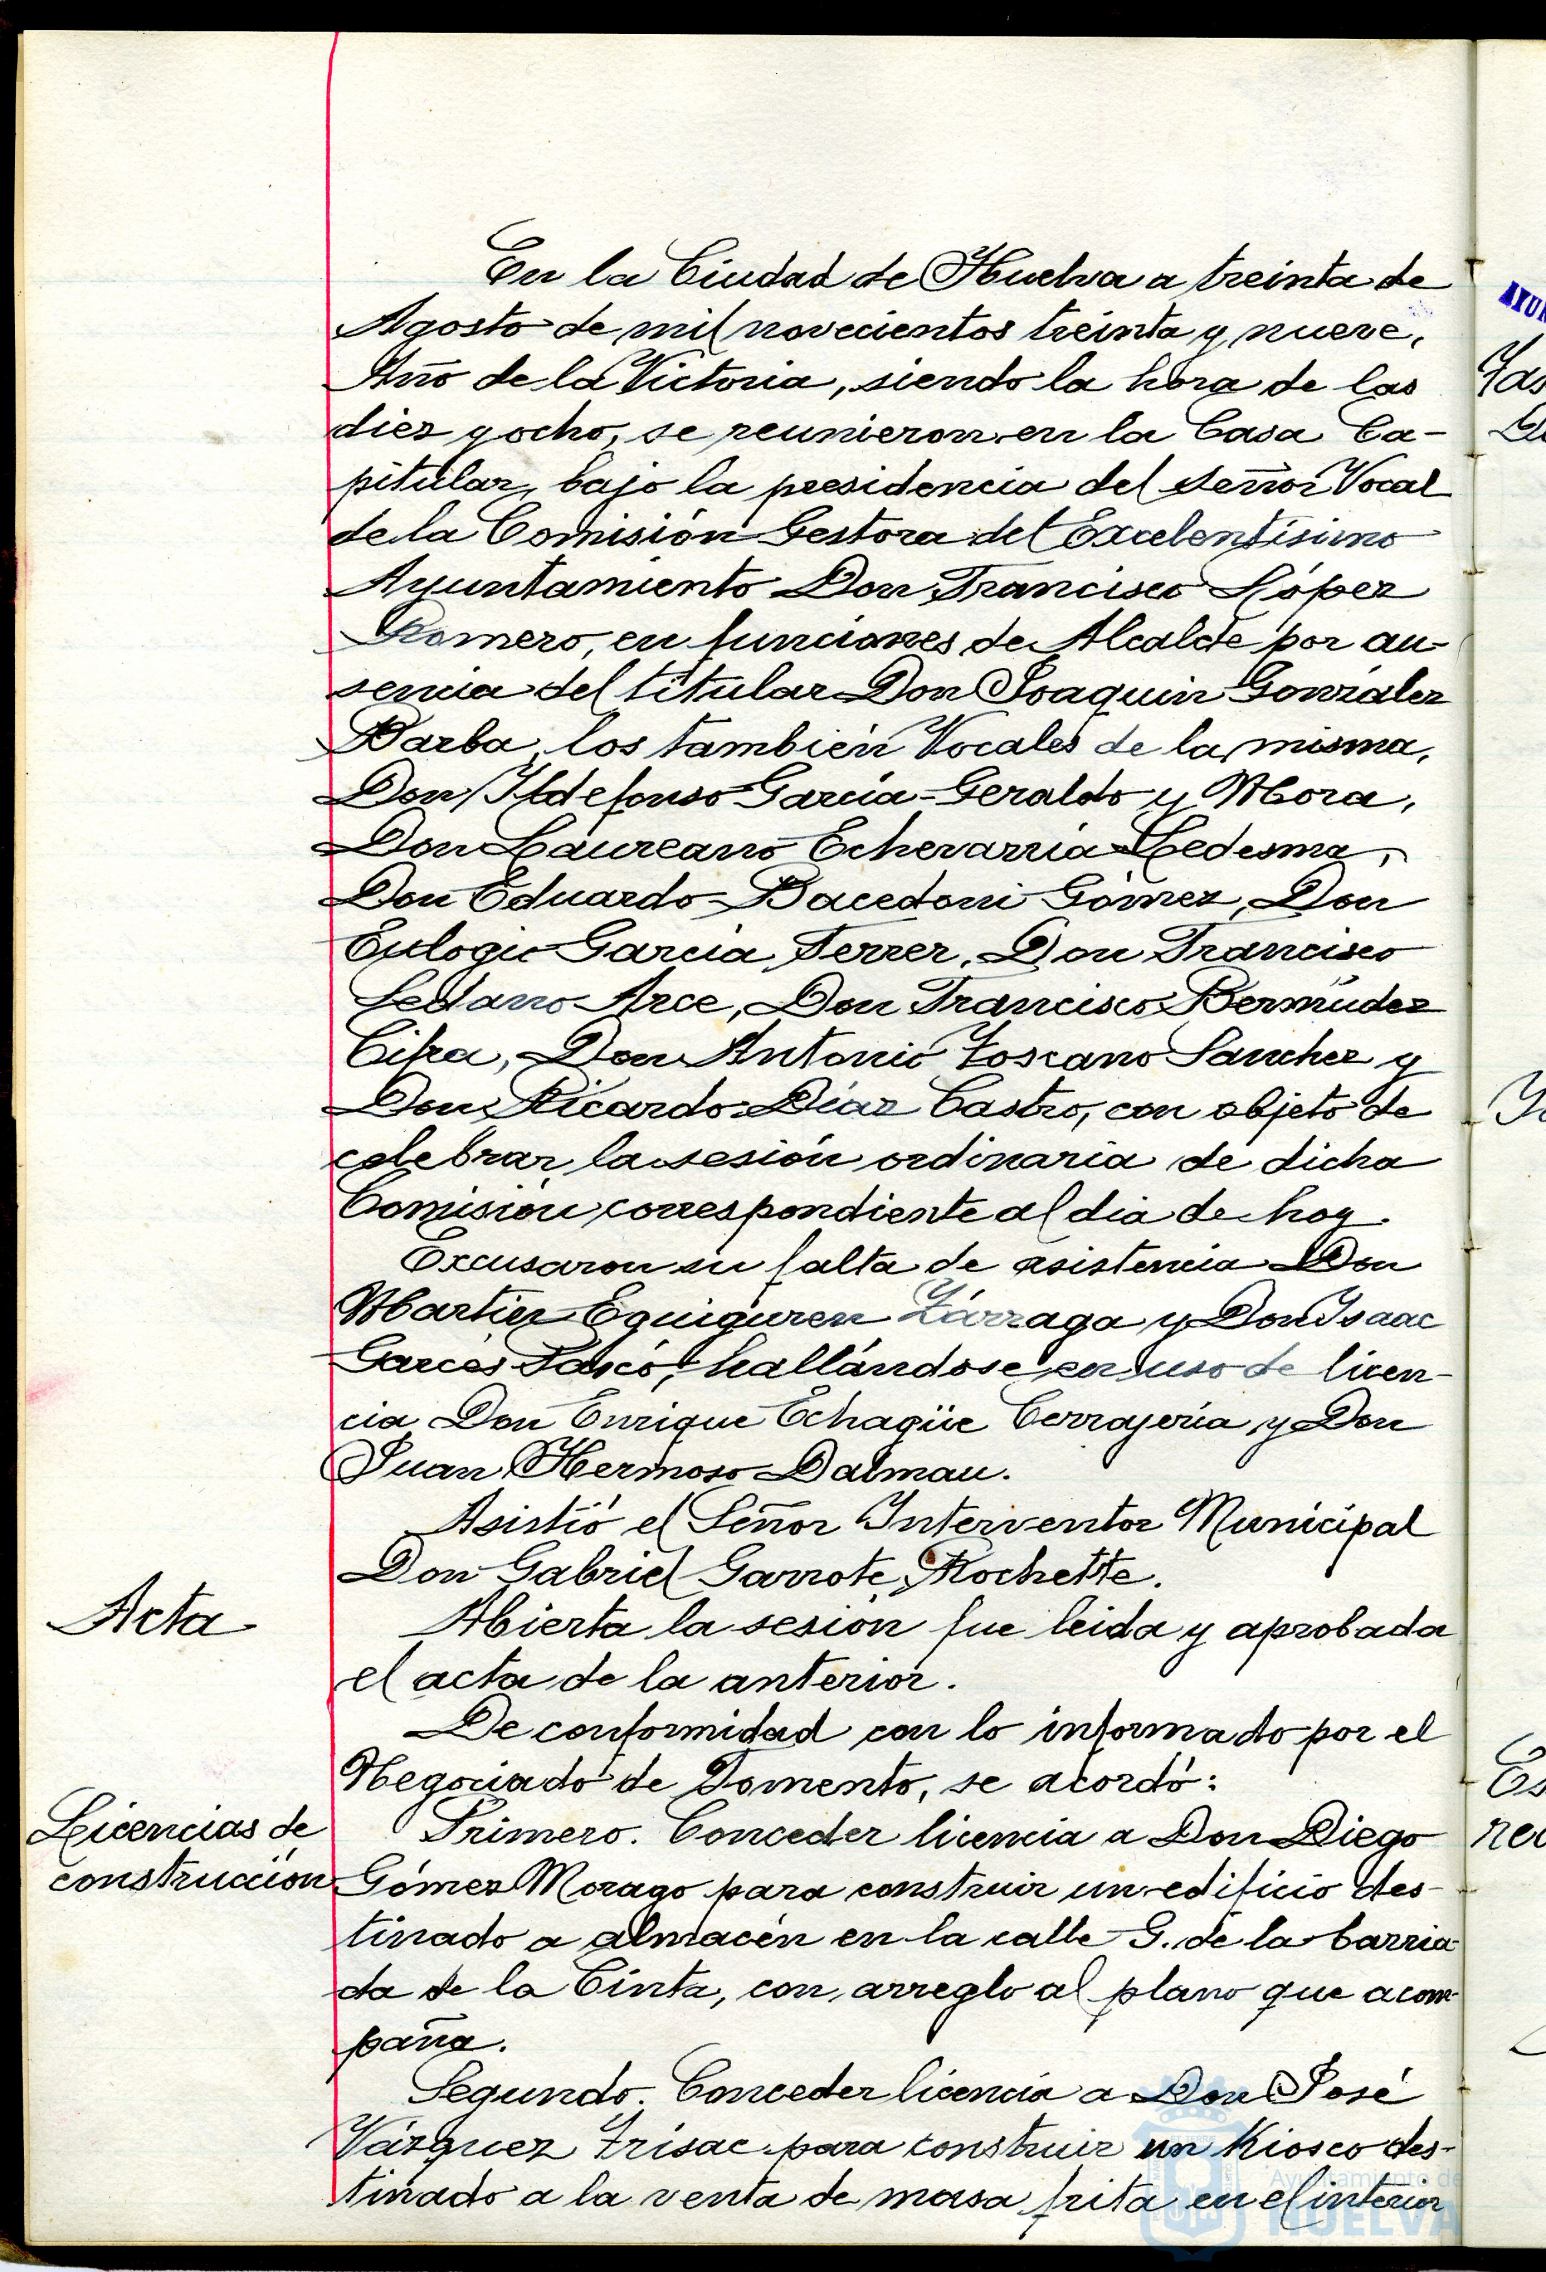 En la Ciudad de Huelva a treinta de
Agosto de mil novecientos treinta y nueve,
Año de la Victoria, siendo la hora de las
diez y ocho, se reunieron en la Casa Ca-
pitular, bajo la presidencia del señor Vocal
de la Comisión Gestora del Excelentísimo
Ayuntamiento Don Francisco López
Romero, en funciones de Alcalde por au-
sencia del titular Don Joaquin González
Barba, los también Vocales de la misma,
Don Ildefonso García-Geraldo y Mora,
Don Laureano Echevarria Ledesma,
Don Eduardo Bacedoni Gómez, Don
Eulogio García Ferrer, Don Francisco
Sedano Arce, Don Francisco Bermúdez
Cifra, Don Antonio Toscano Sanchez y
Don Ricardo Díaz Castro, con objeto de
celebrar la sesión ordinaria de dicha
Comisión correspondiente al dia de hoy.
Excusaron su falta de asistencia Don
Martin Eguiguren Zárraga y Don Isaac
Garcés Pascó, hallándose en uso de licen-
cia Don Enrique Echagüe Cerrajería y Don
Juan Hermoso Dalmau.
Asistió el Señor Interventor Municipal
Don Gabriel Garrote Rochette.
Acta
Abierta la sesión fue leida y aprobada
el acta de la anterior.
De conformidad con lo informado por el
Negociado de Fomento, se acordó:
Licencias de
construcción
Primero. Conceder licencia a Don Diego
Gómez Morago para construir un edificio des-
tinado a almacén en la calle G. de la barria-
da de la Cinta, con arreglo al plano que acom-
paña.
Segundo. Conceder licencia a Don José
Vázquez Frisac para construir un Kiosco des-
tinado a la venta de masa frita en el interior
Ayuntamiento de
HUELVA